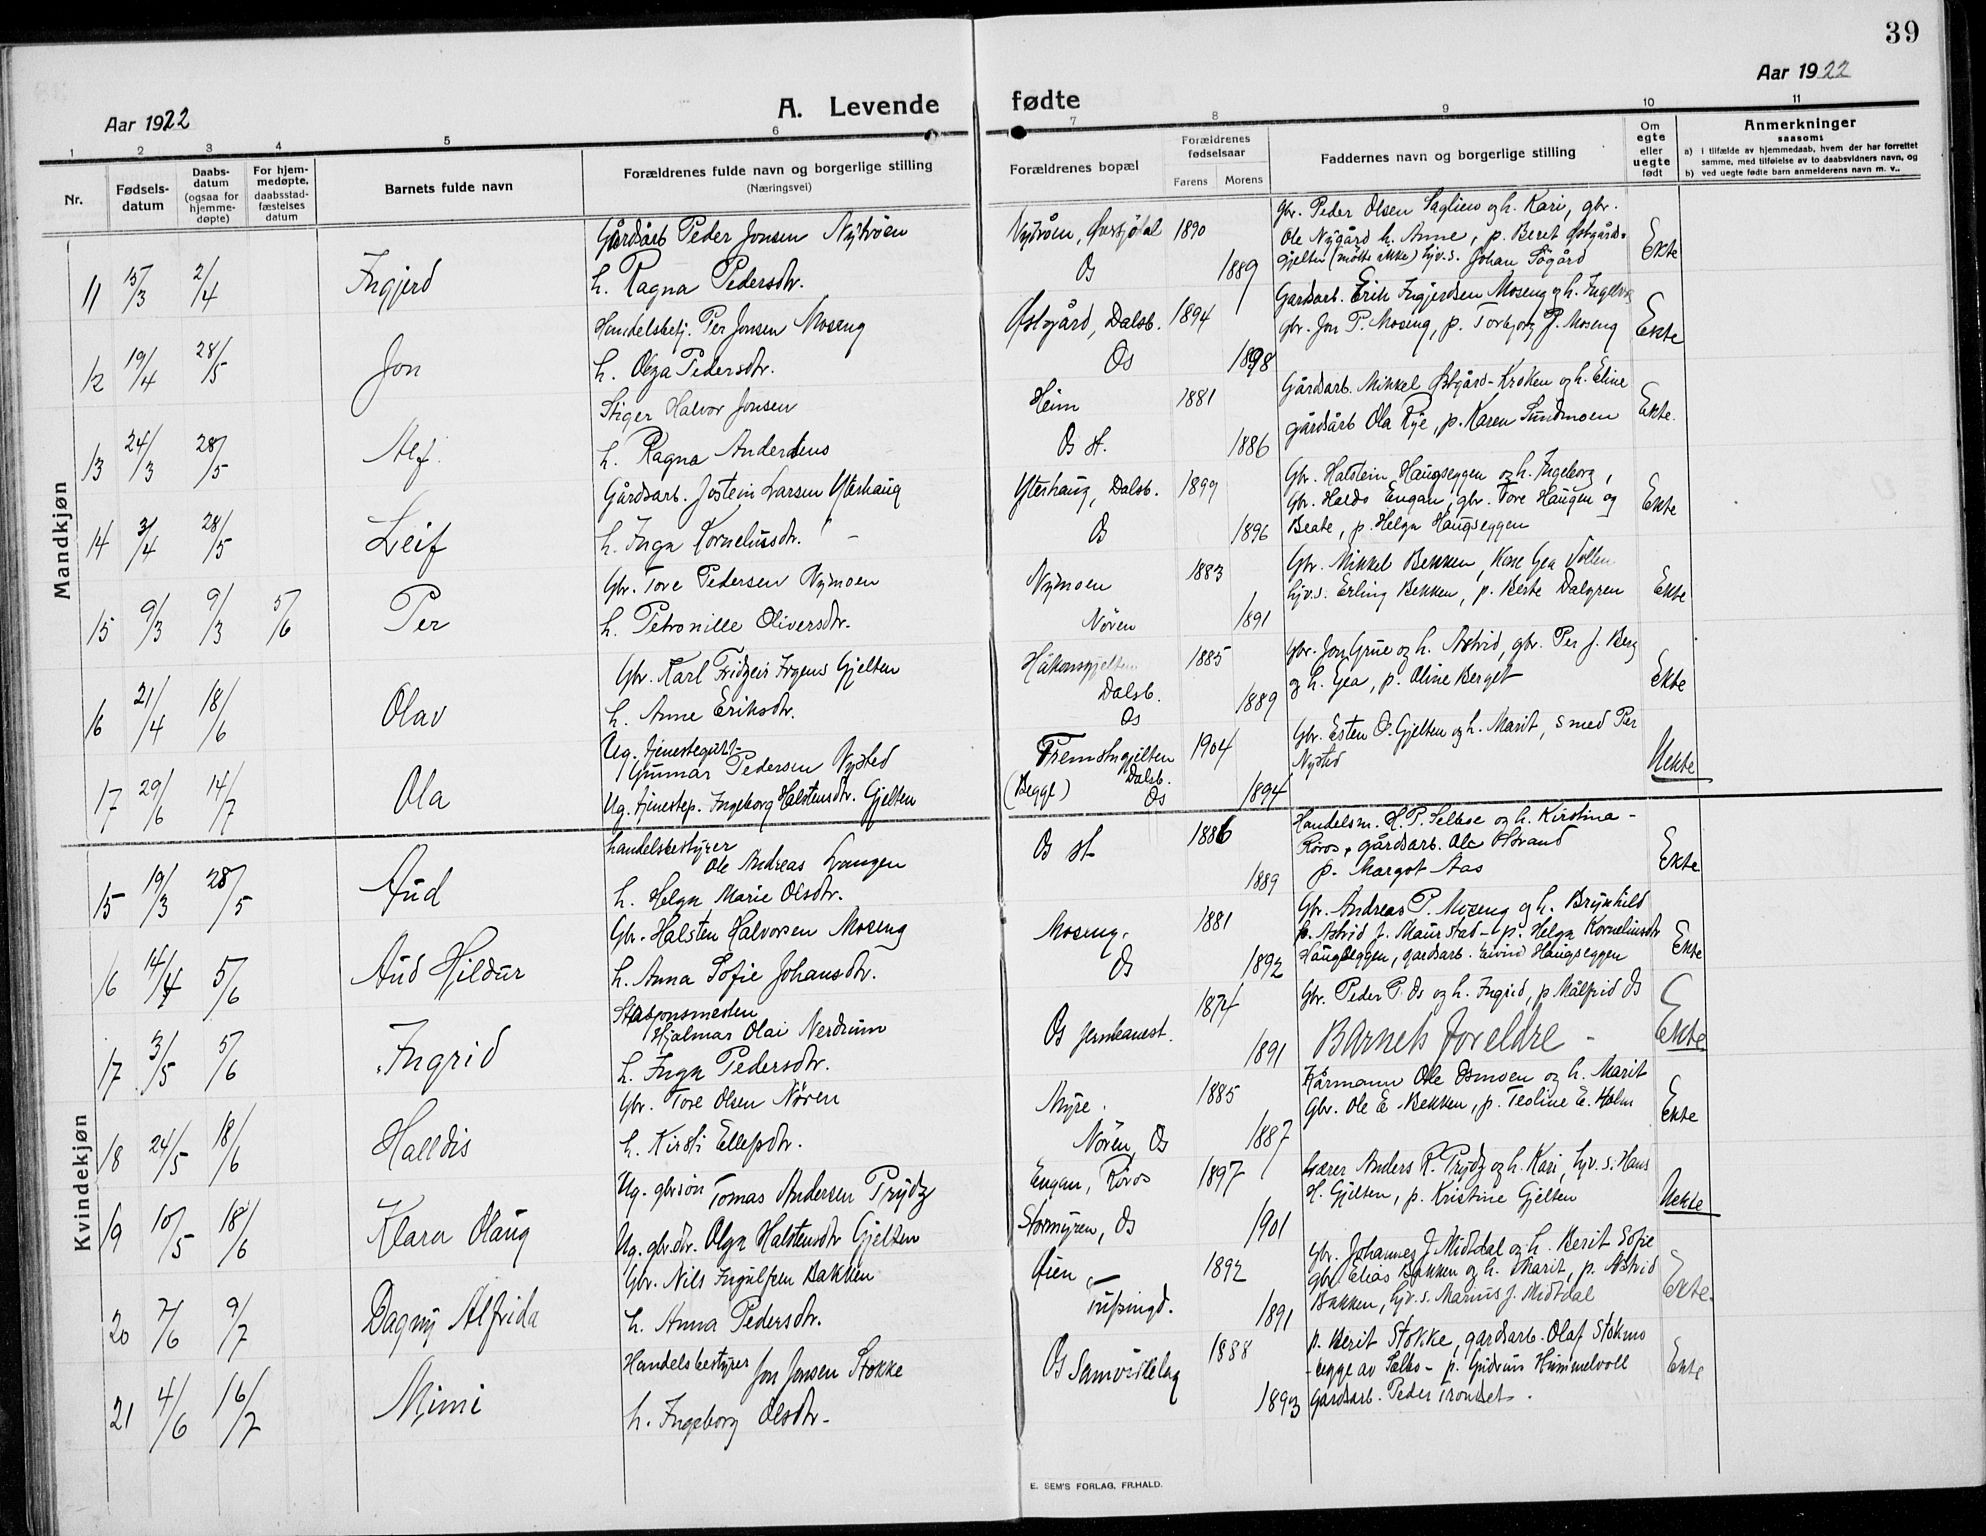 39
Aar 1922
A. Levende
fødte
Aar 1922
1 2 3 4 5 6 7 8 9 10 11
Nr.
Fødsels-
datum
Daabs-
datum
(ogsaa for
hjemme-
døpte)
For hjem-
medøpte,
daabsstad-
fæstelses
datum
Barnets fulde navn
Forældrenes fulde navn og borgerlige stilling
(Næringsvei)
Forældrenes bopæl
Forældrenes
fødselsaar
Farens Morens
Faddernes navn og borgerlige stilling
Om
egte
eller
uegte
født
Anmerkninger
saasom:
a) i tilfælde av hjemmedaab, hvem der har forrettet
samme, med tilføielse av to daabsvidners navn, og
b) ved uegte fødte barn anmelderens navn m. v..
Mandkjøn
11 15/3 2/4 Ingjerd
Gårdsarb Peder Jonsen Nytrøen
h. Ragna Pedersdtr.
Nytrøen, 1890
Os 1889
Gbr. Peder Olsen og h. Kari, gbr.
Ole Nygård h. Anne, p. Beret Østgårds-
gjelten (møtte ikke) hjv.s. Johan Søgård
Ekte
12 19/4 28/5 Jon
Handelsbetj. Per Jonsen Moseng
h. Olga Pedersdtr.
Østgård, Dalsb. 1894
Os 1898
Gardsarb. Erik Ingjerdsen Moseng og h. Ingeborg
gbr. Jon P. Moseng, p. Torbjorg P. Moseng
Ekte
13 24/3 28/5 Alf.
Stiger Halvor Jonsen
h. Ragna Anderdens
Heim 1881
Os st. 1886
Gårdsarb. Mikkel Østgård-Kroken og h. Eline
gårdsarb Ola Rye, p. Karen Sundmoen
Ekte.
14 3/4 28/5 Leif
Gårdsarb. Jostein Larsen Ytterhaug
h. Inga Korneliusdtr. " -
Ytterhaug, Dalsb. 1899
Os 1896
Gbr. Halstein Haugseggen og h. Ingeborg,
Gbr. Haldo Engan, gbr. Tore Haugen og
Beate, p. Helga Haugseggen
Ekte
15 9/3 9/3 5/6 Per
Gbr. Tore Pedersen Nymoen
h. Petronille Oliversdtr.
Nymoen 1883
Nøren 1891
Gbr. Mikkel Bekken, Kone Gea Vollen
hjv.s. Erling Bekken, p. Berte Dalgren
Ekte
16 21/4 18/6 Olav
Gbr. Karl Fridgeir Irgens Gjelten
h. Anne Eriksdtr.
Håkonsgjelten 1885
Dalsb. 1889
Os
Gbr. Jon Grue og h. Astrid, gbr. Per J. Berg
og h. Gea, p. Oline Berget
Ekte
17 29/6 14/7 Ola
Ug. tjenestegutt
Gunnar Pedersen Nysted
Ug. tjenestep. Ingeborg Halstensdtr. Gjelten
Fremstugjelten 1904
(Begge) Dalsb.
Os 1894
Gbr. Esten O. Gjelten og h. Marit, smed Per
Nysted
Uekte
Kvindekjøn
15 19/3 28/5 Aud
Handelsbestyrer
Ole Andreas Langen
h. Helga Marie Olsdtr.
Os st. 1886
1889
Handelsm. H. P. Selboe og h. Kirstina -
Røros, gårdsarb. Ole Østrand
p. Margot Aas
Ekte
16 14/4 5/6 Aud Hildur
Gbr. Halsten Halvorsen Moseng
h. Anna Sofie Johansdtr.
Moseng, 1881
Os 1892
Gbr. Andreas P. Moseng og h. Brynhild
p. Astrid J. Maurstad - p. Helga Korneliusdtr
Haugseggen, gardsarb. Eivind Haugseggen
Ekte
17 3/5 5/6 Ingrid
Stasjonsmesten
Hjalmar Olai Nerdrum
h. Inga Pedersdtr.
Os jernbanest. 1874
1891
Gbr. Peder P. Os og h. Ingrid, p Målfrid Os
Barnets foreldre -
Ekte
18 24/5 18/6 Halldis
Gbr. Tore Olsen Nøren
h. Kirsti Ellefsdtr.
Myre. 1885
Nøren, Os 1887
Kårmann Ole Osmoen og h. Marit
Gbr. Ole E. Bekken, p. Teoline E. Holm
Ekte
19 10/5 18/6 Klara Olaug
Ug. gbrsøn Tomas Andersen Prydz
Ug. gbr.dtr. Olga Halstensdtr Gjelten
Engan, Røros 1897
Stormyren, Os 1901
Lærer Anders R. Prydz og h. Kari, hjv.s. Hans
H. Gjelten, p. Kristine Gjelten
Uekte
20 7/6 9/7 Dagny Alfrida
Gbr. Nils Ingulfsen Bakken
h. Anna Pedersdtr.
Øien, 1892
Tufsingd. 1891
Gbr. Johannes J. Midtdal og h. Berit Sofie
gbr Elias Bakken og h. Marit, p. Astrid
Bakken, hjv.s. Marius J. Midtdal
Ekte.
21 4/6 16/7 Mimi
Handelsbestyrer Jon Jonsen Stokke
h. Ingeborg Olsdtr-
Os Samvirkelag 1888
1893
p. Berit Stokke, gardsarb. Olaf Stokmo
- begge av Selbo - p. Gudrun Hummelvoll
Gardsarb. Peder Trondset.
Ekte
E. SEM'S FORLAG, FR.HALD.